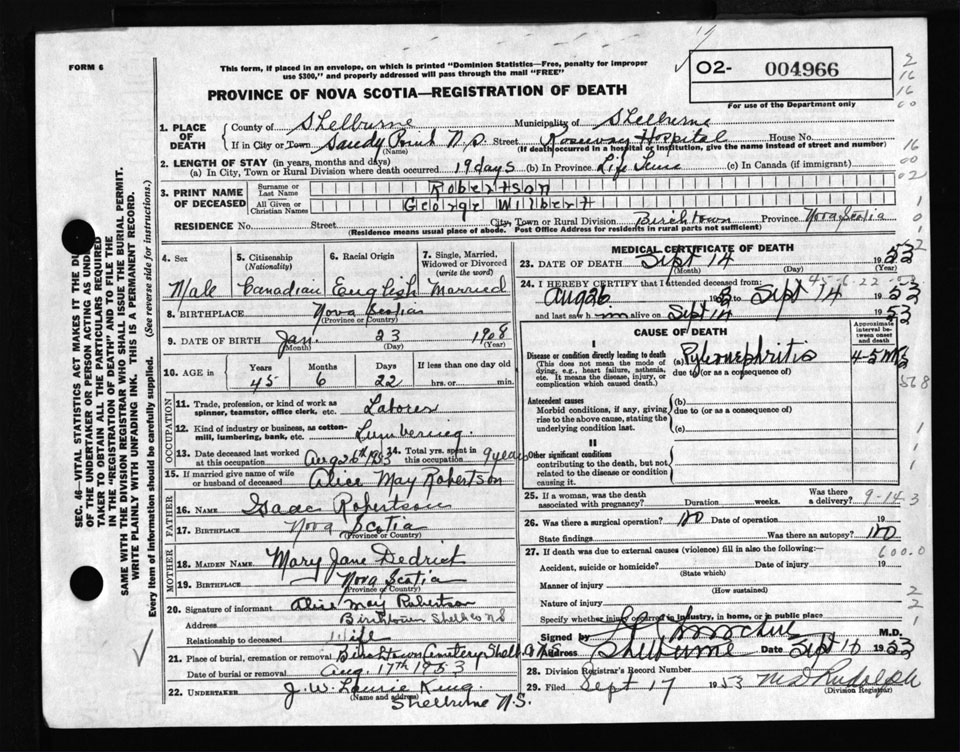 FORM 6
This form, if placed in an envelope, on which is printed "Dominion Statistics—Free, penalty for improper
use $300," and properly addressed will pass through the mail "FREE"
02- 004966
For use of the Department only
PROVINCE OF NOVA SCOTIA—REGISTRATION OF DEATH
1. PLACE OF DEATH
County of Shelburne Municipality of Shelburne
If in City or Town Sandy Point N.S. Street Roseway Hospital House No.
(Name) (If death occurred in a hospital or institution, give the name instead of street and number)
2. LENGTH OF STAY (in years, months and days)
(a) In City, Town or Rural Division where death occurred 19 days (b) In Province Life Time (c) In Canada (if immigrant)
3. PRINT NAME OF DECEASED
Surname or Last Name Robertson
All Given or Christian Names George Wilbert
RESIDENCE No. Street City, Town or Rural Division Birchtown Province Nova Scotia
(Residence means usual place of abode. Post Office Address for residents in rural parts not sufficient)
SEC. 46—VITAL STATISTICS ACT MAKES IT THE
OF THE UNDERTAKER OR PERSON ACTING AS
TAKER TO OBTAIN ALL THE PARTICULARS REQUIRED
IN THE "REGISTRATION OF DEATH" AND TO FILE THE
SAME WITH THE DIVISION REGISTRAR WHO SHALL ISSUE THE BURIAL PERMIT.
WRITE PLAINLY WITH UNFADING INK. THIS IS A PERMANENT RECORD.
Every item of information should be carefully supplied. (See reverse side for instructions.)
4. Sex
Male
5. Citizenship (Nationality)
Canadian
6. Racial Origin
English
7. Single, Married, Widowed or Divorced (write the word)
Married
8. BIRTHPLACE Nova Scotia
(Province or Country)
9. DATE OF BIRTH Jan. 23 1908
(Month) (Day) (Year)
10. AGE in Years Months Days If less than one day old
45 6 22 hrs. or min.
OCCUPATION
11. Trade, profession, or kind of work as
spinner, teamster, office clerk, etc. Laborer
12. Kind of industry or business, as cotton-
mill, lumbering, bank, etc. Lumbering
13. Date deceased last worked
at this occupation Aug 26th 1953
14. Total yrs. spent in
this occupation 9 years
15. If married give name of wife
or husband of deceased Alice May Robertson
FATHER
16. NAME Isaac Robertson
17. BIRTHPLACE Nova Scotia
(Province or Country)
MOTHER
18. MAIDEN NAME Mary Jane Dedrick
19. BIRTHPLACE Nova Scotia
(Province or Country)
20. Signature of informant Alice May Robertson
Address Birchtown Shel Co NS
Relationship to deceased Wife
21. Place of burial, cremation or removal Birchtown Cemetery Shel. Co.
Date of burial or removal Aug. 17th 1953
22. UNDERTAKER J. W. Laurie King
(Name and address)
Shelburne N.S.
MEDICAL CERTIFICATE OF DEATH
23. DATE OF DEATH Sept 14 1953
(Month) (Day) (Year)
24. I HEREBY CERTIFY that I attended deceased from:
Aug 26 1953 to Sept 14 1953
and last saw him alive on Sept 14 1953
CAUSE OF DEATH
Approximate interval between onset and death
I
Disease or condition directly leading to death
(This does not mean the mode of
dying, e.g., heart failure, asthenia,
etc. It means the disease, injury, or
complication which caused death.)
(a) Pyelonephritis
due to (or as a consequence of)
4-5
Antecedent causes
Morbid conditions, if any, giving
rise to the above cause, stating the
underlying condition last.
(b)
due to (or as a consequence of)
(c)
II
Other significant conditions
contributing to the death, but not
related to the disease or condition
causing it.
25. If a woman, was the death
associated with pregnancy? Duration weeks. Was there a delivery?
9-14-3
26. Was there a surgical operation? No Date of operation 19
State findings Was there an autopsy? No
27. If death was due to external causes (violence) fill in also the following:—
600.0
Accident, suicide or homicide? Date of injury 19
(State which)
Manner of injury
(How sustained)
Nature of injury
Specify whether injury occurred in industry, in home, or in public place
Signed by M.D.
Address Shelburne Date Sept 16 1953
28. Division Registrar's Record Number
29. Filed Sept 17 1953 M D Rudolph
(Division Registrar)